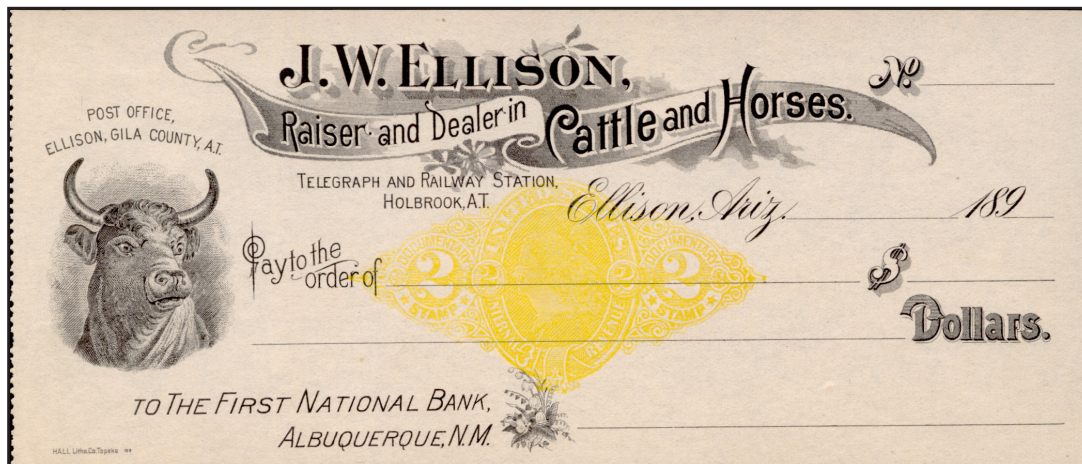 J. W. ELLISON,
Raiser and Dealer in Cattle and Horses.
No
POST OFFICE,
ELLISON, GILA COUNTY, A.T.
TELEGRAPH AND RAILWAY STATION,
HOLBROOK, A.T.
Ellison, Ariz. 189
Pay to the
order of
$
DOCUMENTARY
2
STAMP
UNITED STATES
2
2
INTERNAL REVENUE
DOCUMENTARY
2
STAMP
Dollars.
TO THE FIRST NATIONAL BANK,
ALBUQUERQUE, N.M.
HALL Litho. Co. Topeka